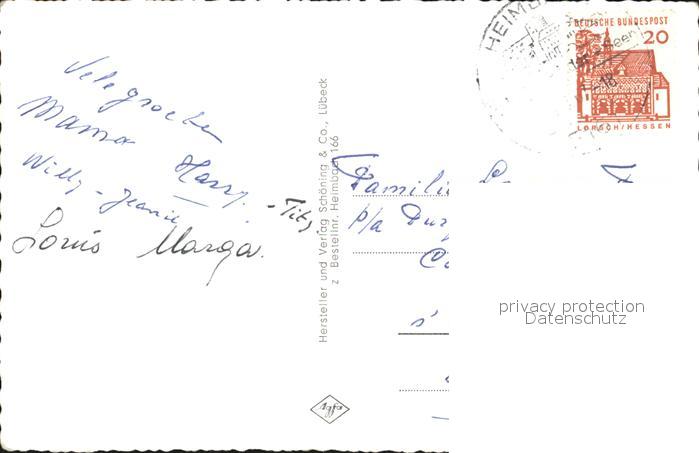 Vele groeten
Mama Harry
Willy - Jeanie - Tits
Louis Marga.
Hersteller und Verlag Schöning & Co., Lübeck
z Bestellnr. Heimbach 166
Agfa
HEIMB
DEUTSCHE BUNDESPOST
20
LORSCH/HESSEN
Famili
p/a
s'
privacy protection
Datenschutz